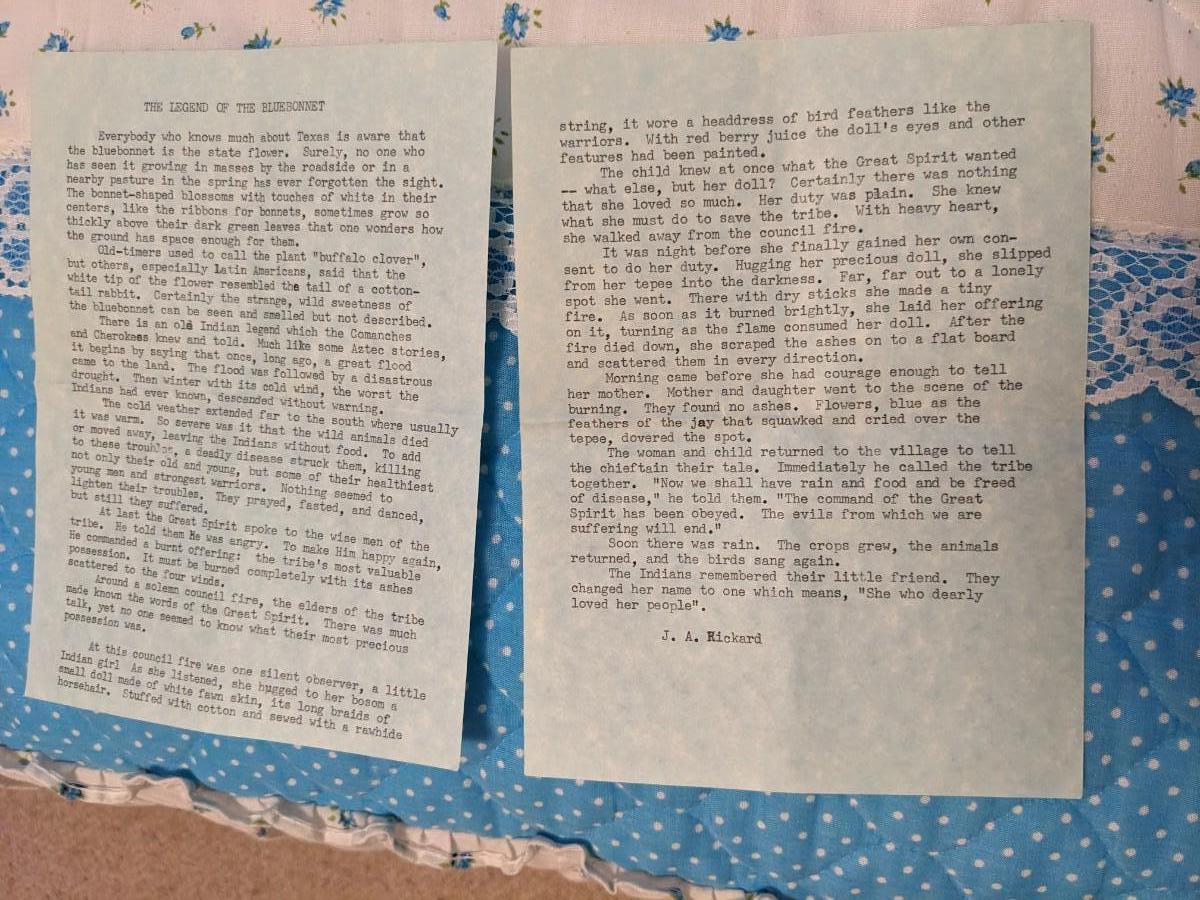 THE LEGEND OF THE BLUEBONNET
Everybody who knows much about Texas is aware that
the bluebonnet is the state flower. Surely, no one who
has seen it growing in masses by the roadside or in a
nearby pasture in the spring has ever forgotten the sight.
The bonnet-shaped blossoms with touches of white in their
centers, like the ribbons for bonnets, sometimes grow so
thickly above their dark green leaves that one wonders how
the ground has space enough for them.
Old-timers used to call the plant "buffalo clover",
but others, especially Latin Americans, said that the
white tip of the flower resembled the tail of a cotton-
tail rabbit. Certainly the strange, wild sweetness of
the bluebonnet can be seen and smelled but not described.
There is an old Indian legend which the Comanches
and Cherokees knew and told. Much like some Aztec stories,
it begins by saying that once, long ago, a great flood
came to the land. The flood was followed by a disastrous
drought. Then winter with its cold wind, the worst the
Indians had ever known, descended without warning.
The cold weather extended far to the south where usually
it was warm. So severe was it that the wild animals died
or moved away, leaving the Indians without food. To add
to these troubles, a deadly disease struck them, killing
not only their old and young, but some of their healthiest
young men and strongest warriors. Nothing seemed to
lighten their troubles. They prayed, fasted, and danced,
but still they suffered.
At last the Great Spirit spoke to the wise men of the
tribe. He told them He was angry. To make Him happy again,
He commanded a burnt offering: the tribe's most valuable
possession. It must be burned completely with its ashes
scattered to the four winds.
Around a solemn council fire, the elders of the tribe
made known the words of the Great Spirit. There was much
talk, yet no one seemed to know what their most precious
possession was.
At this council fire was one silent observer, a little
Indian girl As she listened, she hugged to her bosom a
small doll made of white fawn skin, its long braids of
horsehair. Stuffed with cotton and sewed with a rawhide
string, it wore a headdress of bird feathers like the
warriors. With red berry juice the doll's eyes and other
features had been painted.
The child knew at once what the Great Spirit wanted
-- what else, but her doll? Certainly there was nothing
that she loved so much. Her duty was plain. She knew
what she must do to save the tribe. With heavy heart,
she walked away from the council fire.
It was night before she finally gained her own con-
sent to do her duty. Hugging her precious doll, she slipped
from her tepee into the darkness. Far, far out to a lonely
spot she went. There with dry sticks she made a tiny
fire. As soon as it burned brightly, she laid her offering
on it, turning as the flame consumed her doll. After the
fire died down, she scraped the ashes on to a flat board
and scattered them in every direction.
Morning came before she had courage enough to tell
her mother. Mother and daughter went to the scene of the
burning. They found no ashes. Flowers, blue as the
feathers of the jay that squawked and cried over the
tepee, dovered the spot.
The woman and child returned to the village to tell
the chieftain their tale. Immediately he called the tribe
together. "Now we shall have rain and food and be freed
of disease," he told them. "The command of the Great
Spirit has been obeyed. The evils from which we are
suffering will end."
Soon there was rain. The crops grew, the animals
returned, and the birds sang again.
The Indians remembered their little friend. They
changed her name to one which means, "She who dearly
loved her people".
J. A. Rickard